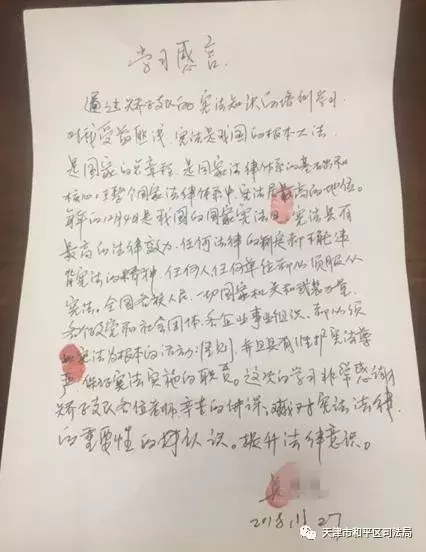 学习感言
通过矫正支队的宪法知识的培训学习
对我受益匪浅，宪法是我国的根本大法
是国家的总章程，是国家法律体系的基础和
核心，在整个国家法律体系中，宪法居最高的地位。
每年的12月4日是我国的国家宪法日，宪法具有
最高的法律效力，任何法律的制定都不能违
背宪法的精神，任何人任何单位都必须服从
宪法，全国各族人民，一切国家机关和武装力量，
各个政党和社会团体，各企业事业组织，都必须
以宪法为根本的活动准则，并且具有维护宪法尊
严，保证宪法实施的职责。这次的学习非常感谢
矫正支队各位老师辛苦的讲课，对宪法法律
的重要性的认识。提升法律意识。
2018.11.27
天津市和平区司法局